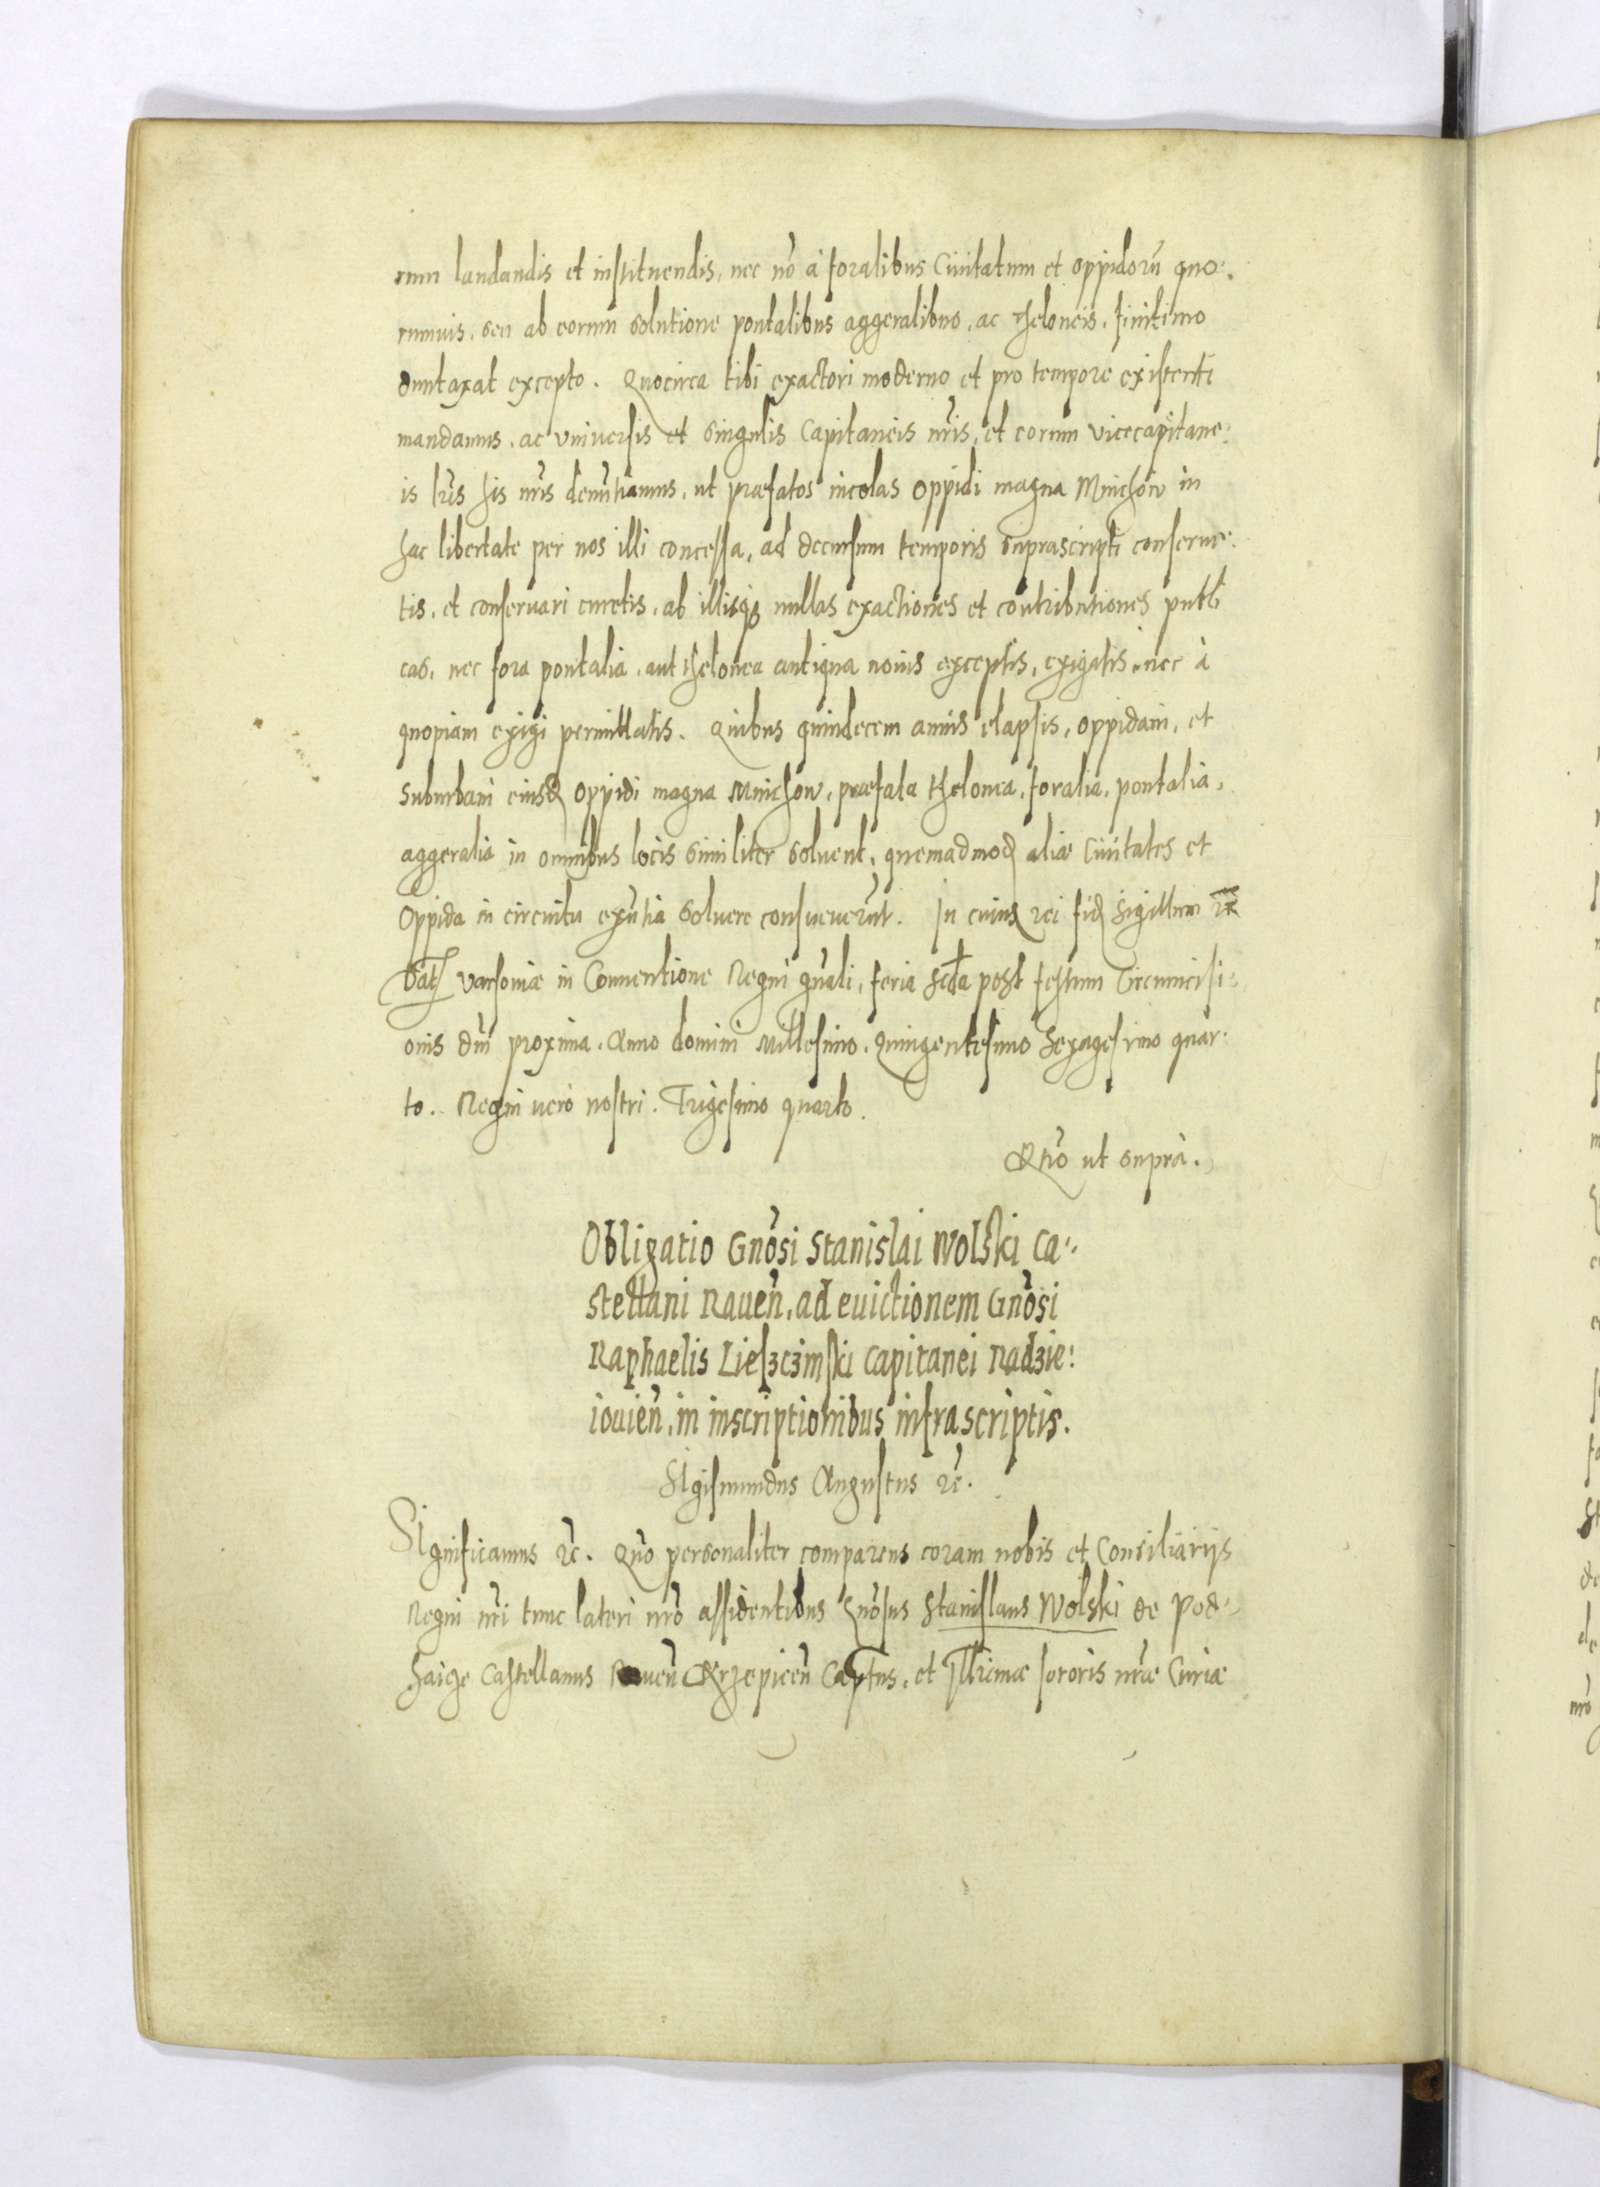 rum laudandis et instituendis, nec nō à foralibus Ciuitatum et oppidorū quo:
rumuis, seu ab eorum solutione pontalibus aggeralibus, ac theloneis, finitimo
duntaxat excepto. Quocirca tibi exactori moderno et pro tempore existenti
mandamus, ac vniuersis et singulis Capitaneis nr̄is, et eorum vicecapitane:
is lr̄is his nr̄is denūtiamus, ut præfatos incolas oppidi magna Mnichow in
hac libertate per nos illi concessa, ad decursum temporis suprascripti conserue:
tis, et conseruari curetis, ab illisqȝ nullas exactiones et contributiones publi
cas, nec fora pontalia, aut thelonea antiqua nouis exceptis, exigatis, nec à
quopiam exigi permittatis. Quibus quindecem annis elapsis, oppidani, et
suburbani eiusd oppidi magna Mnichow, præfata thelonea, foralia, pontalia,
aggeralia in omnibus locis similiter soluent, quemadmod aliæ Ciuitates et
oppida in circuitu exn̄tia soluere consueuerūt. In cuius rei fid Sigillum rc̄
Dat Varsouiæ in Conuentione Regni gn̄ali, feria scd̄a post festum Circumcisi:
onis dn̄i proxima. Anno domini Millesimo, Quingentesimo Sexagesimo quar:
to. Regni uero nostri. Trigesimo quarto.
Rn̄o ut suprà.
Obligatio Gn̄osi Stanislai Wolski Ca:
stellani Rauen̄, ad euictionem Gn̄osi
Raphaelis Lieszczinski Capitanei Radzie:
iouien̄, in inscriptionibus infrascriptis.
Sigismundus Augustus rc̄.
Significamus rc̄. Quō personaliter comparens coram nobis et Consiliarijs
Regni nr̄i tunc lateri nr̄o assidentibus Gn̄osus Stanislaus Wolski de Pod:
haicze Castellanus Rauen̄ Krzepicen̄ Captus, et Ill̄rimæ sororis nr̄æ Curiæ